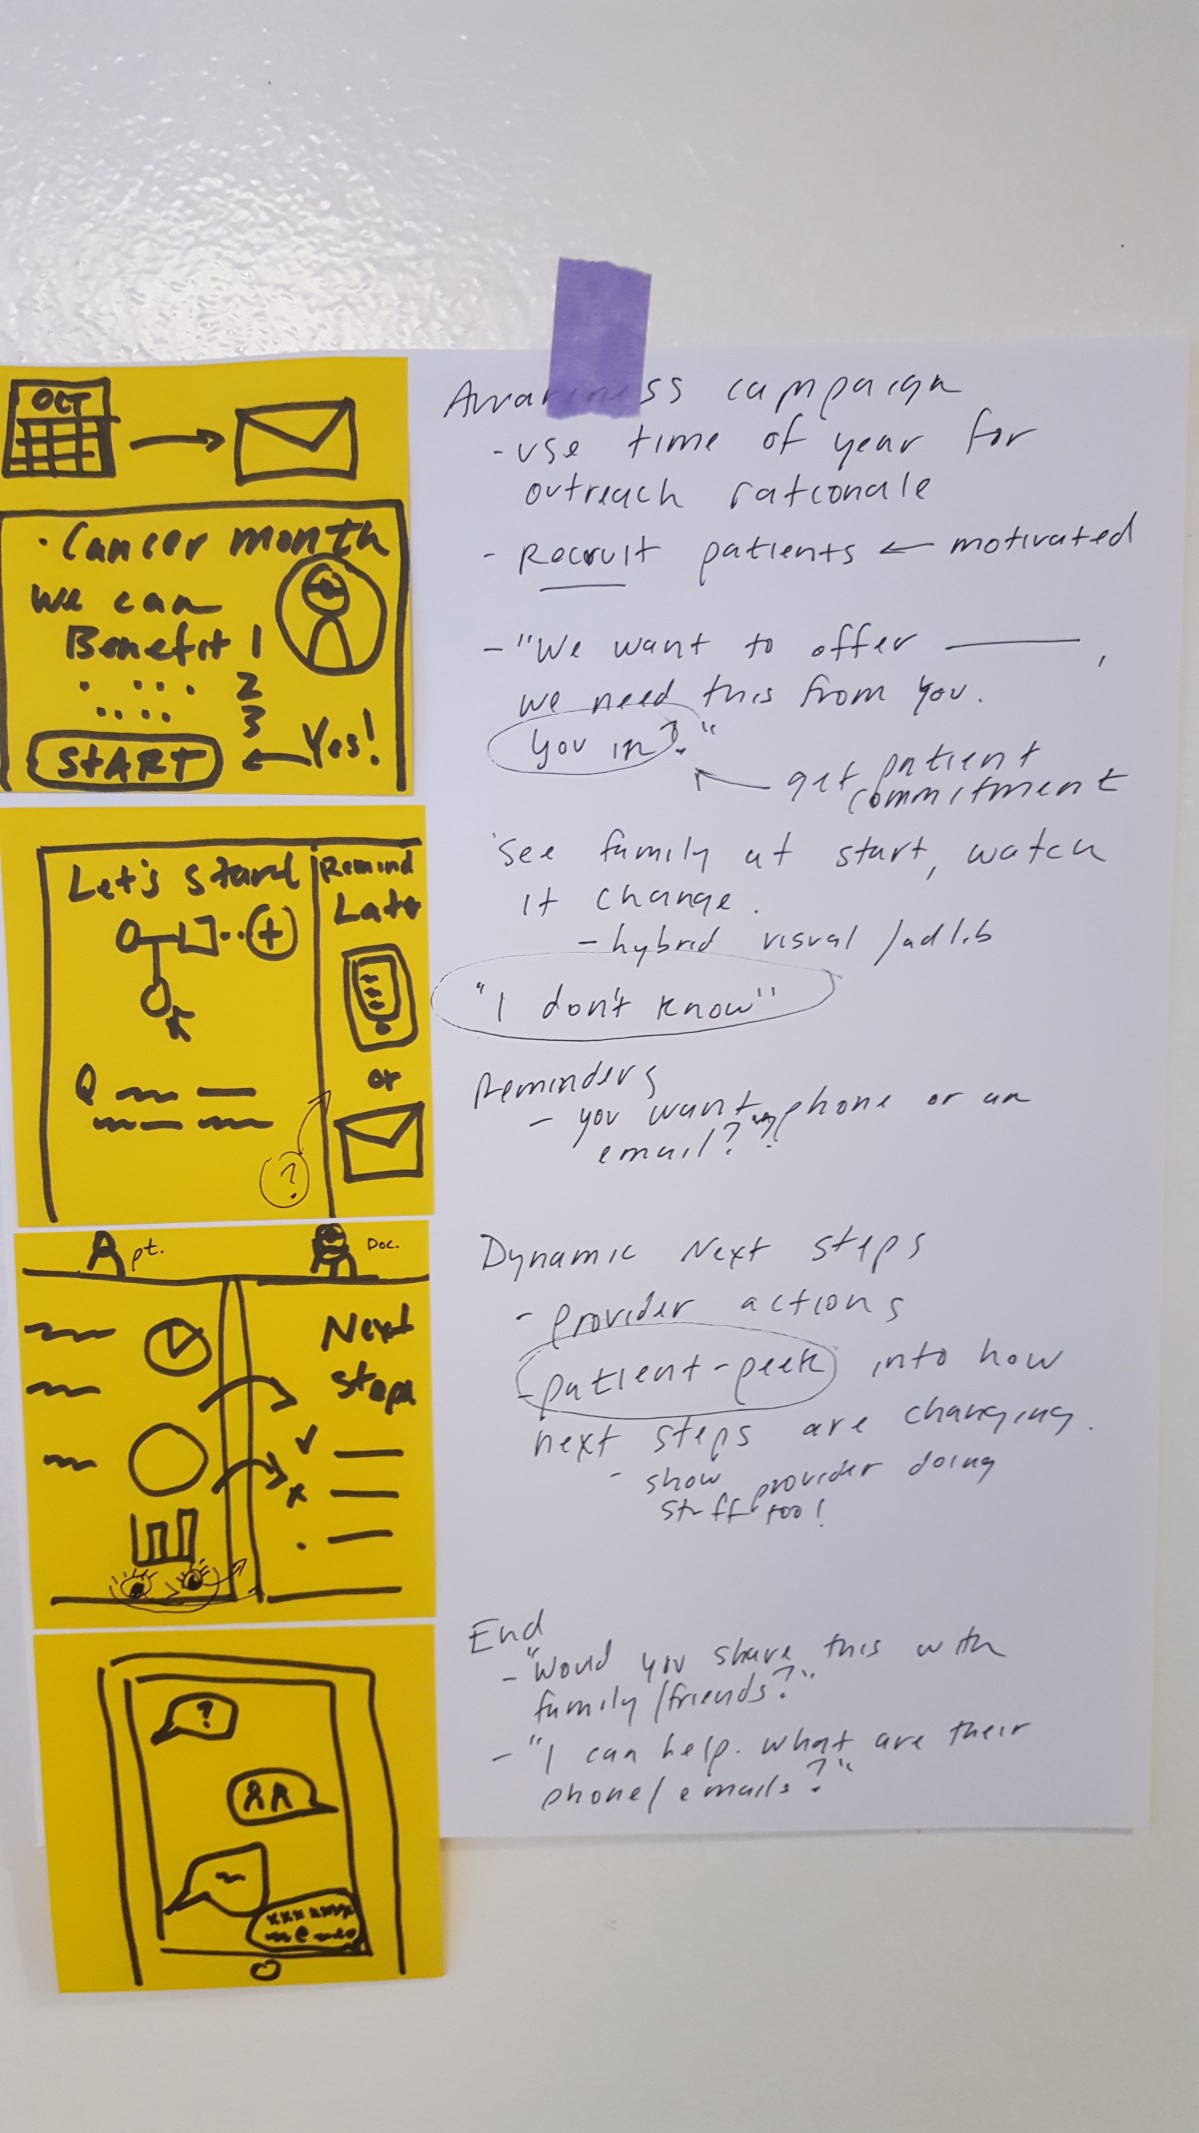 OCT
· Cancer month
we can
Benefit 1
2
3
START ← Yes!
Awareness campaign
- use time of year for
outreach rationale
- Recruit patients ← motivated
- "We want to offer ———,
we need this from you.
you in?"
← get patient
commitment
Let's start
Remind
Late
(+)
Q
or
?
See family at start, watch
it change.
- hybrid visual/adlib
"I don't know"
Reminders
- you want phone or an
email?
pt.
Doc.
Next
Steps
Dynamic Next steps
- provider actions
- patient-peek into how
next steps are changing.
- show provider doing
stuff too!
?
xxx xxxx
@
End
- "Would you share this with
family/friends?"
- "I can help. what are their
phone/emails?"